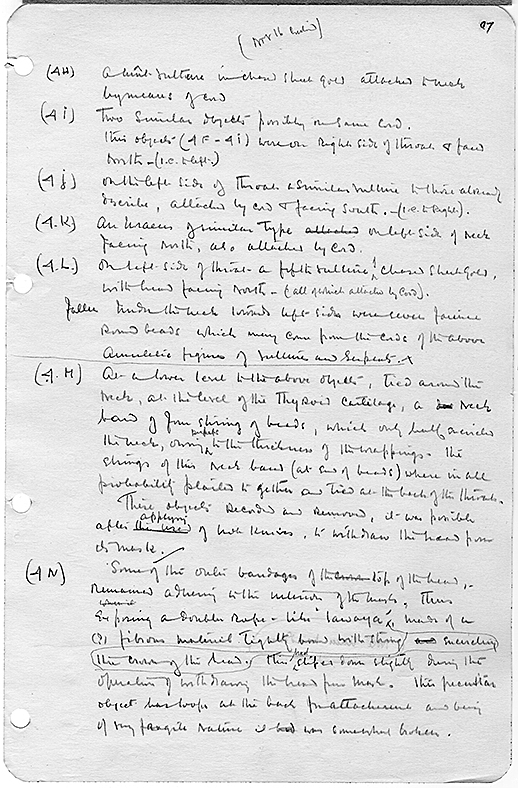 97
(4H) A bird-vulture in chased sheet gold attached to neck
by means of cord
(4i) Two similar objects possibly on same cord.
This objects (4F - 4i) were on right side of throat & faced
North - (i.e. to left.)
(4j) On the left side of throat a similar vulture to those already
describe, attached by cord & facing South. - (i.e. to Right).
(4.K) An Uraeus of similar type attached on left side of neck
facing North, also attached by cord.
(4.L.) On left side of throat - a fifth vulture, of chased sheet gold,
with head facing North - (all of which attached by cord).
Fallen under the neck towards left side were seven faience
round beads which may come from the ends of the above
Amuletic figures of vultures and Serpents. x
(4.M) At a lower level to the above objects, tied around the
neck, at the level of the Thyroid Cartilage, a neck
band of four string of beads, which only half encircled
the neck, owing perhaps to the thickness of the wrappings. The
strings of this neck band (at end of beads) where in all
probability plaited together and tied at the back of the throat.
These objects recorded and removed, it was possible
after the use applying of hot knives, to withdraw the head from
its mask.
(4N) Some of the outer bandages of the crown top of the head,
remained adhering to the interior of the mask, thus
Exposing a double rope-like 'tawaya', made of a
(?) fibrous material tightly bound with string and encircling
the crown of the head, this had slipped down slightly during the
operation of withdrawing the head from mask. This peculiar
object has loops at the back for attachment and being
of very fragile nature it had was somewhat broken.